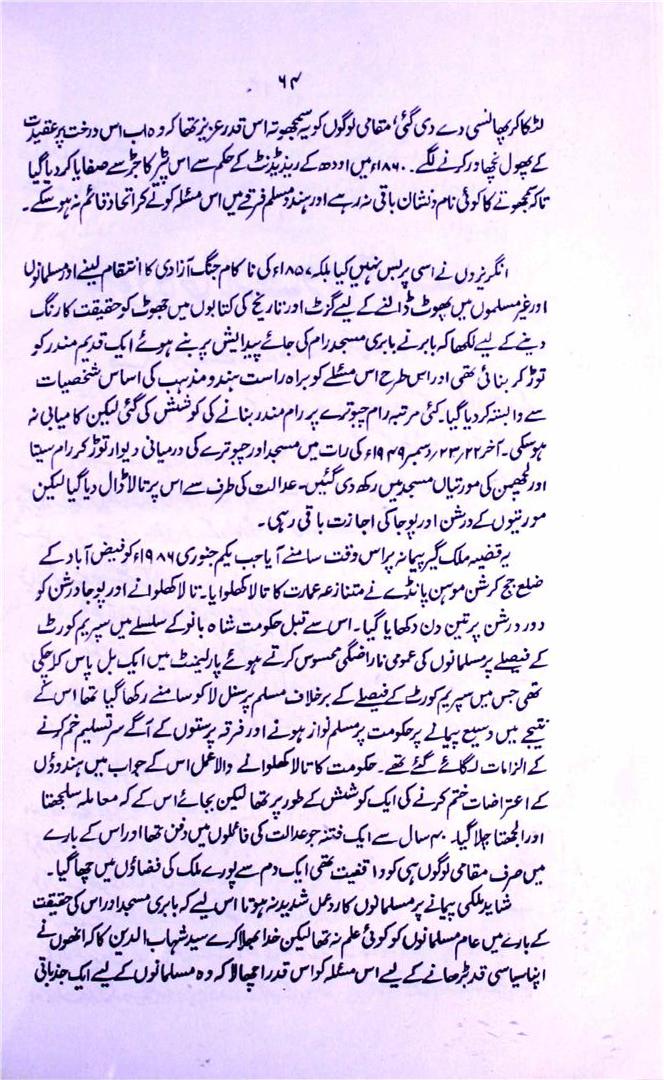 ۶۴
لٹکا کر پھانسی دے دی گئی، مقامی لوگوں کو یہ سمجھوتہ اس قدر عزیز تھا کہ وہ اب اس درخت پر عقیدت
کے پھول نچھاور کرنے لگے۔ ۱۸۶۰ء میں اودھ کے ریذیڈنٹ کے حکم سے اس پیڑ کا جڑ سے صفایا کر دیا گیا
تاکہ سمجھوتے کا کوئی نام و نشان باقی نہ رہے اور ہندو مسلم فرقے میں اس مسئلہ کو لے کر اتحاد قائم نہ ہو سکے۔
انگریزوں نے اسی پر بس نہیں کیا بلکہ ۱۸۵۷ء کی ناکام جنگ آزادی کا انتقام لینے اور مسلمانوں
اور غیر مسلموں میں پھوٹ ڈالنے کے لیے گزٹ اور تاریخ کی کتابوں میں جھوٹ کو حقیقت کا رنگ
دینے کے لیے لکھا کہ بابر نے بابری مسجد رام کی جائے پیدایش پر بنے ہوئے ایک قدیم مندر کو
توڑ کر بنائی تھی اور اس طرح اس مسئلے کو براہ راست ہندو مذہب کی اساس شخصیات
سے وابستہ کر دیا گیا۔ کئی مرتبہ رام چبوترے پر رام مندر بنانے کی کوشش کی گئی لیکن کامیابی نہ
ہو سکی۔ آخر ۲۲؍۲۳؍دسمبر ۱۹۴۹ء کی رات میں مسجد اور چبوترے کی درمیانی دیوار توڑ کر رام سیتا
اور لچھمن کی مورتیاں مسجد میں رکھ دی گئیں۔ عدالت کی طرف سے اس پر تالا ڈال دیا گیا لیکن
مورتیوں کے درشن اور پوجا کی اجازت باقی رہی۔
یہ قضیہ ملک گیر پیمانہ پر اس وقت سامنے آیا جب یکم جنوری ۱۹۸۶ء کو فیض آباد کے
ضلع جج کرشن موہن پانڈے نے متنازعہ عمارت کا تالا کھلوایا۔ تالا کھلوانے اور پوجا درشن کو
دور درشن پر تین دن دکھایا گیا۔ اس سے قبل حکومت شاہ بانو کے سلسلے میں سپریم کورٹ
کے فیصلے پر مسلمانوں کی عمومی ناراضگی محسوس کرتے ہوئے پارلیمنٹ میں ایک بل پاس کرا چکی
تھی جس میں سپریم کورٹ کے فیصلے کے برخلاف مسلم پرسنل لا کو سامنے رکھا گیا تھا اس کے
نتیجے میں وسیع پیمانے پر حکومت پر مسلم نواز ہونے اور فرقہ پرستوں کے آگے سر تسلیم خم کرنے
کے الزامات لگائے گئے تھے۔ حکومت کا تالا کھلوانے والا عمل اس کے جواب میں ہندوؤں
کے اعتراضات ختم کرنے کی ایک کوشش کے طور پر تھا لیکن بجائے اس کے کہ معاملہ سلجھتا
اور الجھتا چلا گیا۔ ۴۰ سال سے ایک فتنہ جو عدالت کی فائلوں میں دفن تھا اور اس کے بارے
میں صرف مقامی لوگوں ہی کو واقفیت تھی ایک دم سے پورے ملک کی فضاؤں میں چھا گیا۔
شاید ملکی پیمانے پر مسلمانوں کا رد عمل شدید نہ ہوتا اس لیے کہ بابری مسجد اور اس کی حقیقت
کے بارے میں عام مسلمانوں کو کوئی علم نہ تھا لیکن خدا بھلا کرے سید شہاب الدین کا کہ انھوں نے
اپنا سیاسی قد بڑھانے کے لیے اس مسئلہ کو اس قدر اچھالا کہ وہ مسلمانوں کے لیے ایک جذباتی